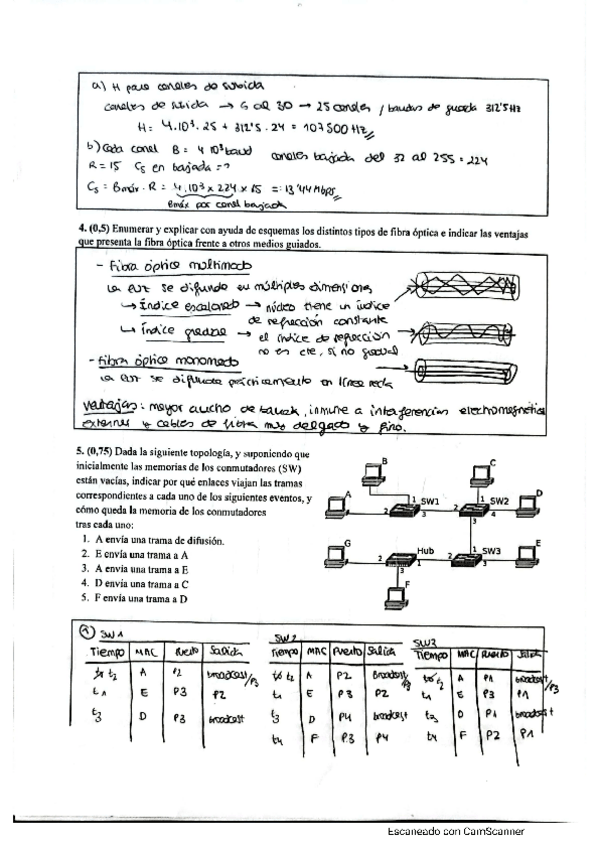 a) H para canales de subida
canales de subida → 6 al 30 → 25 canales / bandas de guarda 312'5 Hz
H = 4.10³. 25 + 312'5 . 24 = 107500 Hz
b) Cada canal B = 4 10³ baud canales bajada del 32 al 255 = 224
R = 15 Cs en bajada = ?
Cs = Bmáx . R = 4.10³ x 224 x 15 = 13'44 Mbps
Bmáx por canal bajada
4. (0,5) Enumerar y explicar con ayuda de esquemas los distintos tipos de fibra óptica e indicar las ventajas
que presenta la fibra óptica frente a otros medios guiados.
- Fibra óptica multimodo
La luz se difunde en múltiples dimensiones
↳ Índice escalonado → núcleo tiene un índice
de refracción constante
↳ Índice gradual → el índice de refracción
no es cte, si no gradual
- Fibra óptica monomodo
La luz se difunde prácticamente en línea recta
Ventajas: mayor ancho de banda, inmune a interferencias electromagnética
externas y cables de fibra muy delgado y fino.
5. (0,75) Dada la siguiente topología, y suponiendo que
inicialmente las memorias de los conmutadores (SW)
están vacías, indicar por qué enlaces viajan las tramas
correspondientes a cada uno de los siguientes eventos, y
cómo queda la memoria de los conmutadores
tras cada uno:
1. A envía una trama de difusión.
2. E envía una trama a A
3. A envía una trama a E
4. D envía una trama a C
5. F envía una trama a D
B C
A 1 SW1 1 SW2 D
2 3 2 4
3
G 2 Hub 1 SW3 E
1 2 3
3
F
1 SW1 SW2 SW3
Tiempo MAC Puerto Salida Tiempo MAC Puerto Salida Tiempo MAC Puerto Salida
t0 t2 A P2 broadcast/P3 t0 t2 A P2 Broadcast/P3 t0 t2 A P1 broadcast/P3
t1 E P3 P2 t1 E P3 P2 t1 E P3 P1
t3 D P3 broadcast t3 D P4 broadcast t3 D P1 broadcast
t4 F P3 P4 t4 F P2 P1
Escaneado con CamScanner